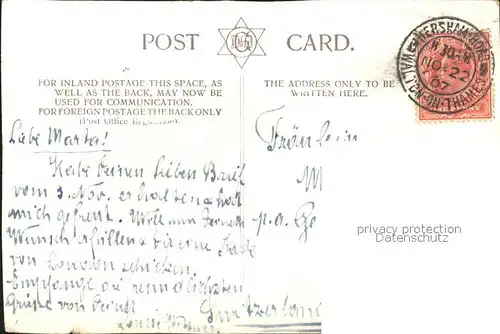 POST CARD.
FOR INLAND POSTAGE THIS SPACE, AS
WELL AS THE BACK, MAY NOW BE
USED FOR COMMUNICATION.
FOR FOREIGN POSTAGE THE BACK ONLY
(Post Office Regulation).
THE ADDRESS ONLY TO BE
WRITTEN HERE.
HERSHAM ROAD
NO 22
07
WALTON-ON-THAMES
Liebe Marta!
Habe Deinen lieben Brief
vom 3. Nov. erhalten & hat
mich gefreut. Will nun Deinen
Wunsch erfüllen & Dir eine Karte
von London schicken.
Empfange die freundlichsten
Grüsse von Deiner
Fräulein
M
p.a. Ge
Switzerland
privacy protection
Datenschutz